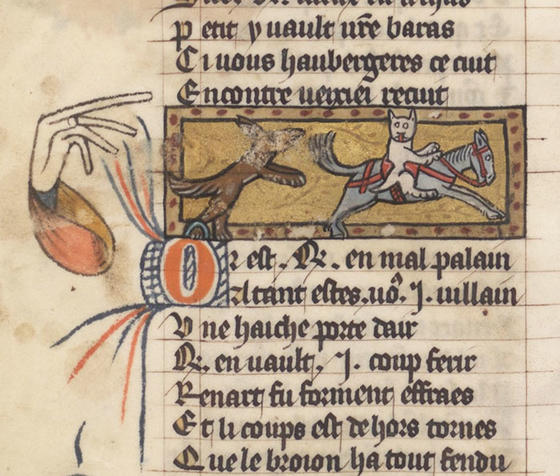 P etit y vault vr̄e baras
C i vous haubergeres ce cuit
E ncontre
O r est . R̃ . en mal palain
A tant estes.uo᷑. j . uillain
V ne haiche porte dair
R̃ . en uault . j . coup ferir
R enart fu forment effraes
E t li coups est dehors tornes
Q ue le broion ha tout fendu